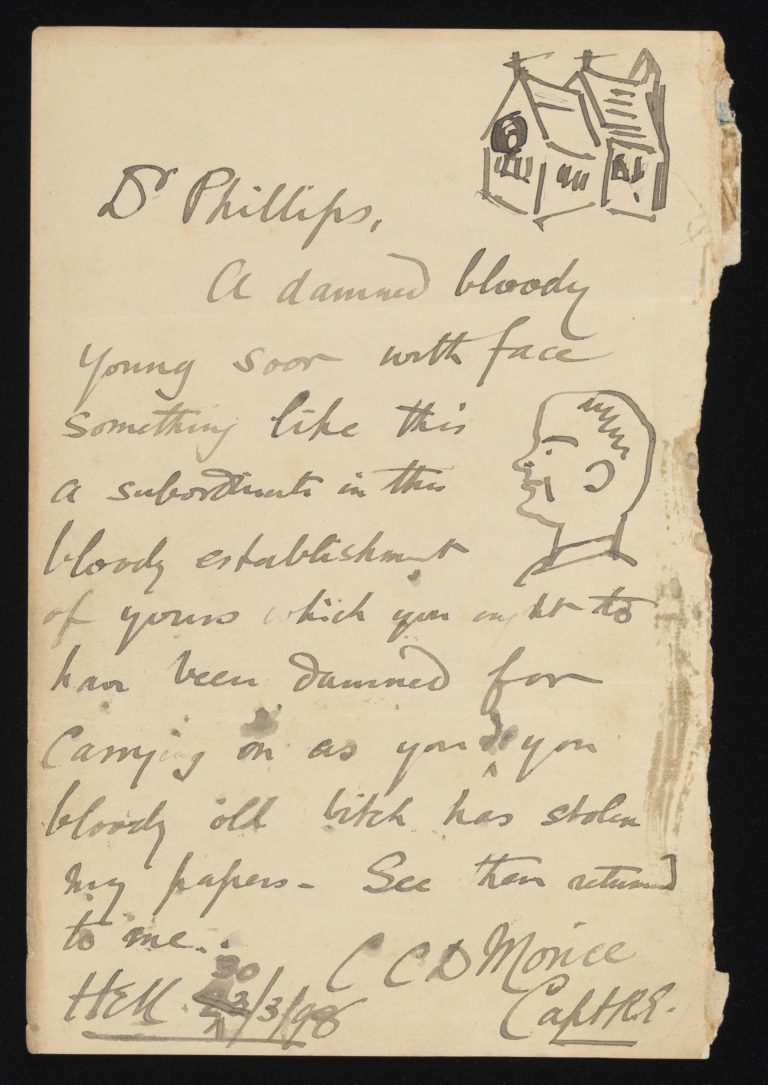 Dr Phillips,
A damned bloody
young soor with face
something like this
a subordinate in this
bloody establishment
of yours which you ought to
have been damned for
carrying on as you do you
bloody old bitch has stolen
my papers - See them returned
to me.
C C D Morice
Hell 30/3/98
Capt R.E.